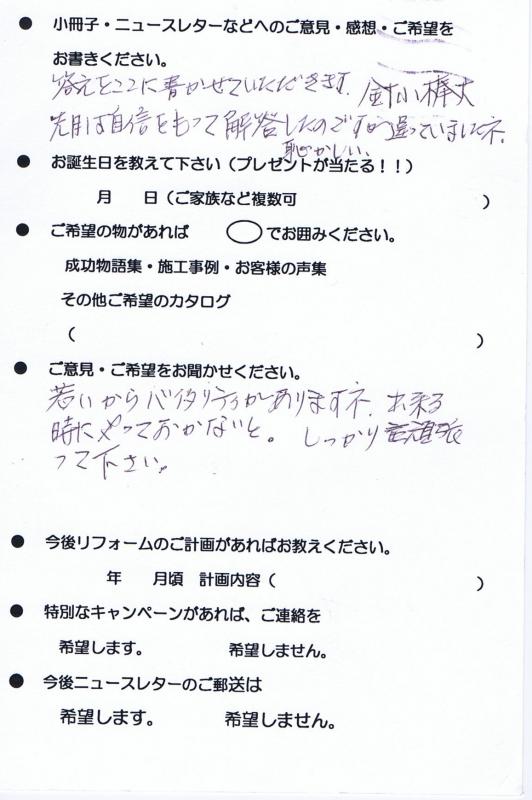 ● 小冊子・ニュースレターなどへのご意見・感想・ご希望を
お書きください。
答えをここに書かせていただきます. 針小棒大
先月は自信をもって解答したのですが違っていましたネ.
恥かしい、
● お誕生日を教えて下さい(プレゼントが当たる!!)
月 日(ご家族など複数可 )
● ご希望の物があれば ◯でお囲みください。
成功物語集・施工事例・お客様の声集
その他ご希望のカタログ
( )
● ご意見・ご希望をお聞かせください。
若いからバイタリティがありますネ. 出来る
時にやっておかないと。しっかり頑張
って下さい。
● 今後リフォームのご計画があればお教えください。
年 月頃 計画内容( )
● 特別なキャンペーンがあれば、ご連絡を
希望します。 希望しません。
● 今後ニュースレターのご郵送は
希望します。 希望しません。